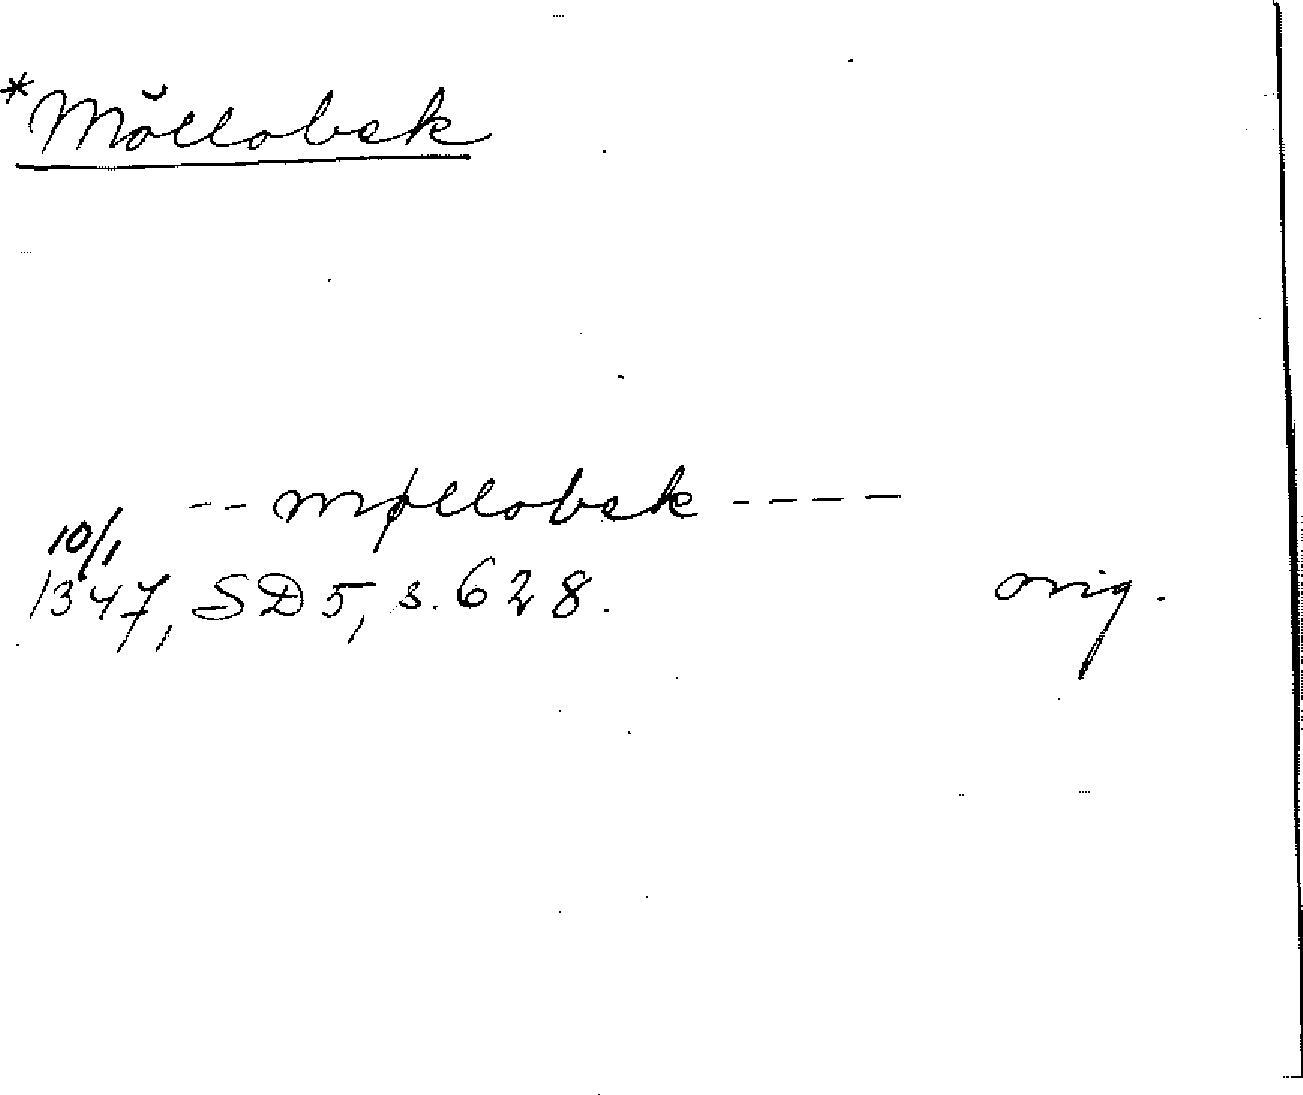 *Möllobek
-- møllobek ----
10/1
1347, SD 5, s. 628. orig.